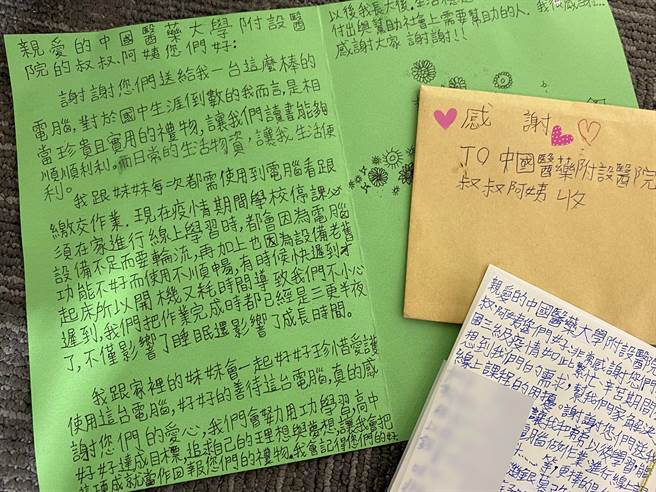 親愛的中國醫藥大學附設醫
院的叔叔.阿姨您們好:
謝謝您們送給我一台這麼棒的
電腦,對於國中生涯倒數的我而言,是相
當珍貴且實用的禮物,讓我們讀書能夠
順順利利。而日常的生活物資,讓我生活便
利。
我跟妹妹每次都需使用到電腦看跟
繳交作業.現在疫情期間學校停課必
須在家進行線上學習時,都會因為電腦
設備不足而要輪流,再加上也因為設備老舊
功能不好而使用不順暢,有時候快遲到才
起床所以開機又耗時間導致我們不小心
遲到,我們把作業完成時都已經是三更半夜
了,不僅影響了睡眠還影響了成長時間。
我跟家裡的妹妹會一起好好珍惜愛護
使用這台電腦,好好的善待這台電腦,真的感
謝您們的愛心,我們會努力用功學習,高中
好好達成目標,追求自己的理想與夢想,讓我會把
這項成就當作回報您們的禮物。我會記得您們的好
以後我長大後,生活
付出與幫助社會上需要幫助的人.我很感謝
感謝大家 謝謝!!
感 謝
TO 中國醫藥附設醫院
叔叔阿姨 收
親愛的中國醫藥大學附設醫院
叔叔阿姨您們好:非常感謝您們
國三級疫情如此繁忙辛苦期間
想到我們的需求,幫我們家解決
線上課程的困擾,謝謝您們送